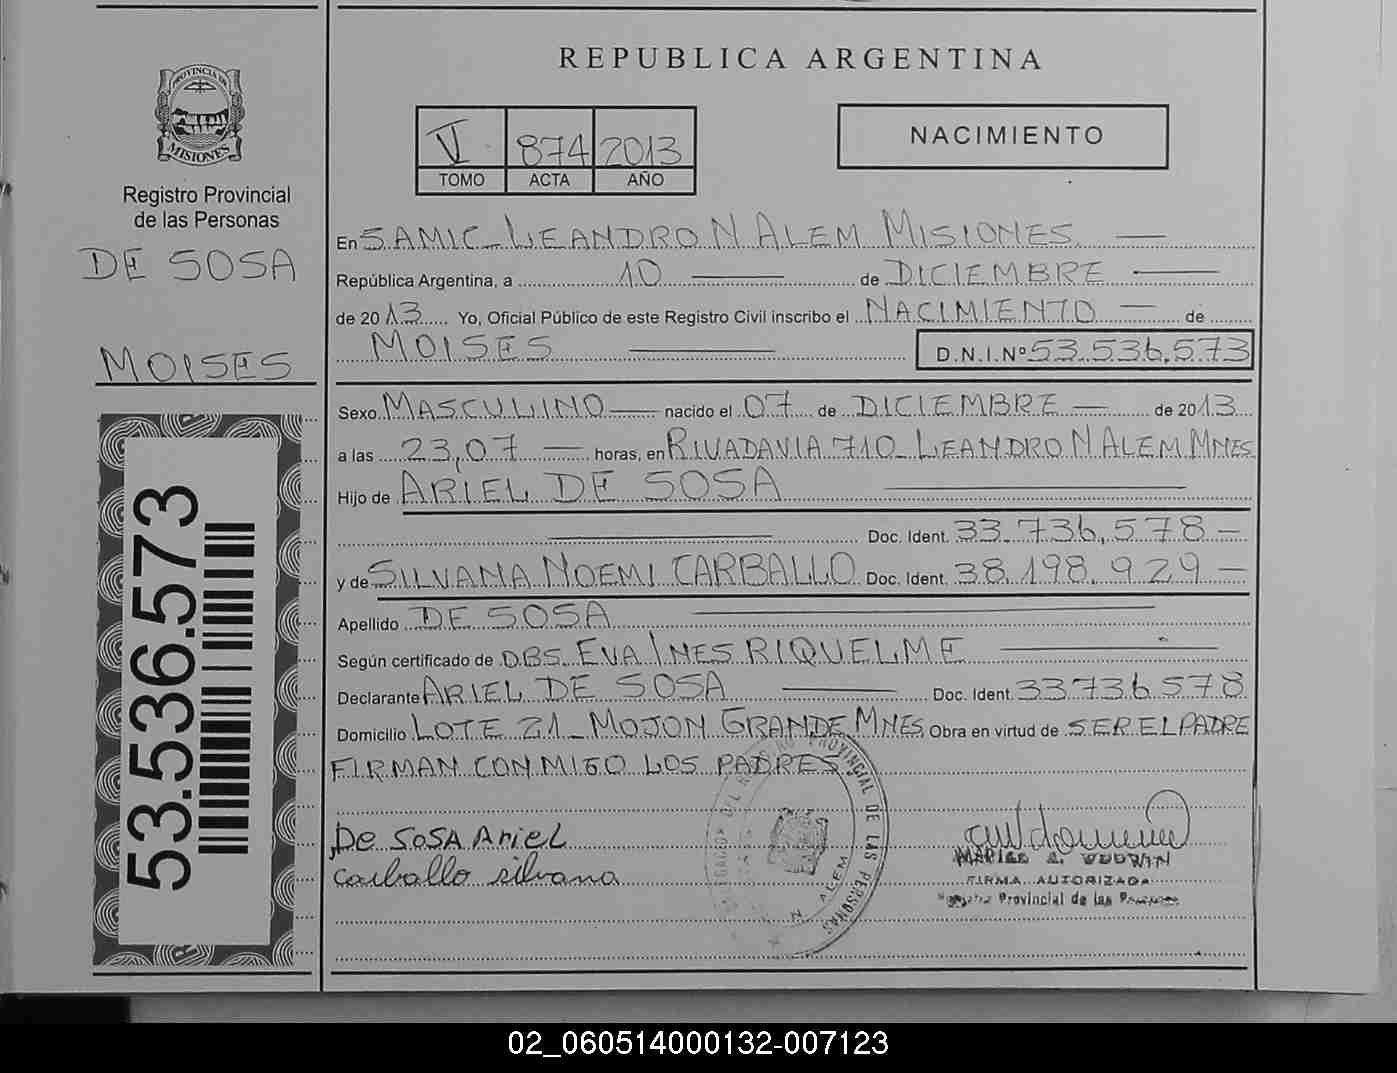 REPUBLICA ARGENTINA
PROVINCIA DE
MISIONES
Registro Provincial
de las Personas
DE SOSA
MOISES
53.536.573
VI 874 2013
TOMO ACTA AÑO
NACIMIENTO
En SAMIC - LEANDRO N ALEM MISIONES
República Argentina, a 10 de DICIEMBRE
de 2013 Yo, Oficial Público de este Registro Civil inscribo el NACIMIENTO de
MOISES D.N.I.Nº 53.536.573
Sexo MASCULINO nacido el 07 de DICIEMBRE de 2013
a las 23,07 horas, en RIVADAVIA 710 - LEANDRO N ALEM MNES
Hijo de ARIEL DE SOSA
Doc. Ident. 33.736.578
y de SILVANA NOEMI CARBALLO Doc. Ident. 38.198.929
Apellido DE SOSA
Según certificado de OBS. EVA INES RIQUELME
Declarante ARIEL DE SOSA Doc. Ident. 33736578
Domicilio LOTE 21 - MOJON GRANDE MNES Obra en virtud de SER EL PADRE
FIRMAN CONMIGO LOS PADRES
De SOSA Ariel
Carballo silvana
PROVINCIAL DE LAS PERSONAS
N. ALEM
FIRMA AUTORIZADA
Provincial de las
02_060514000132-007123